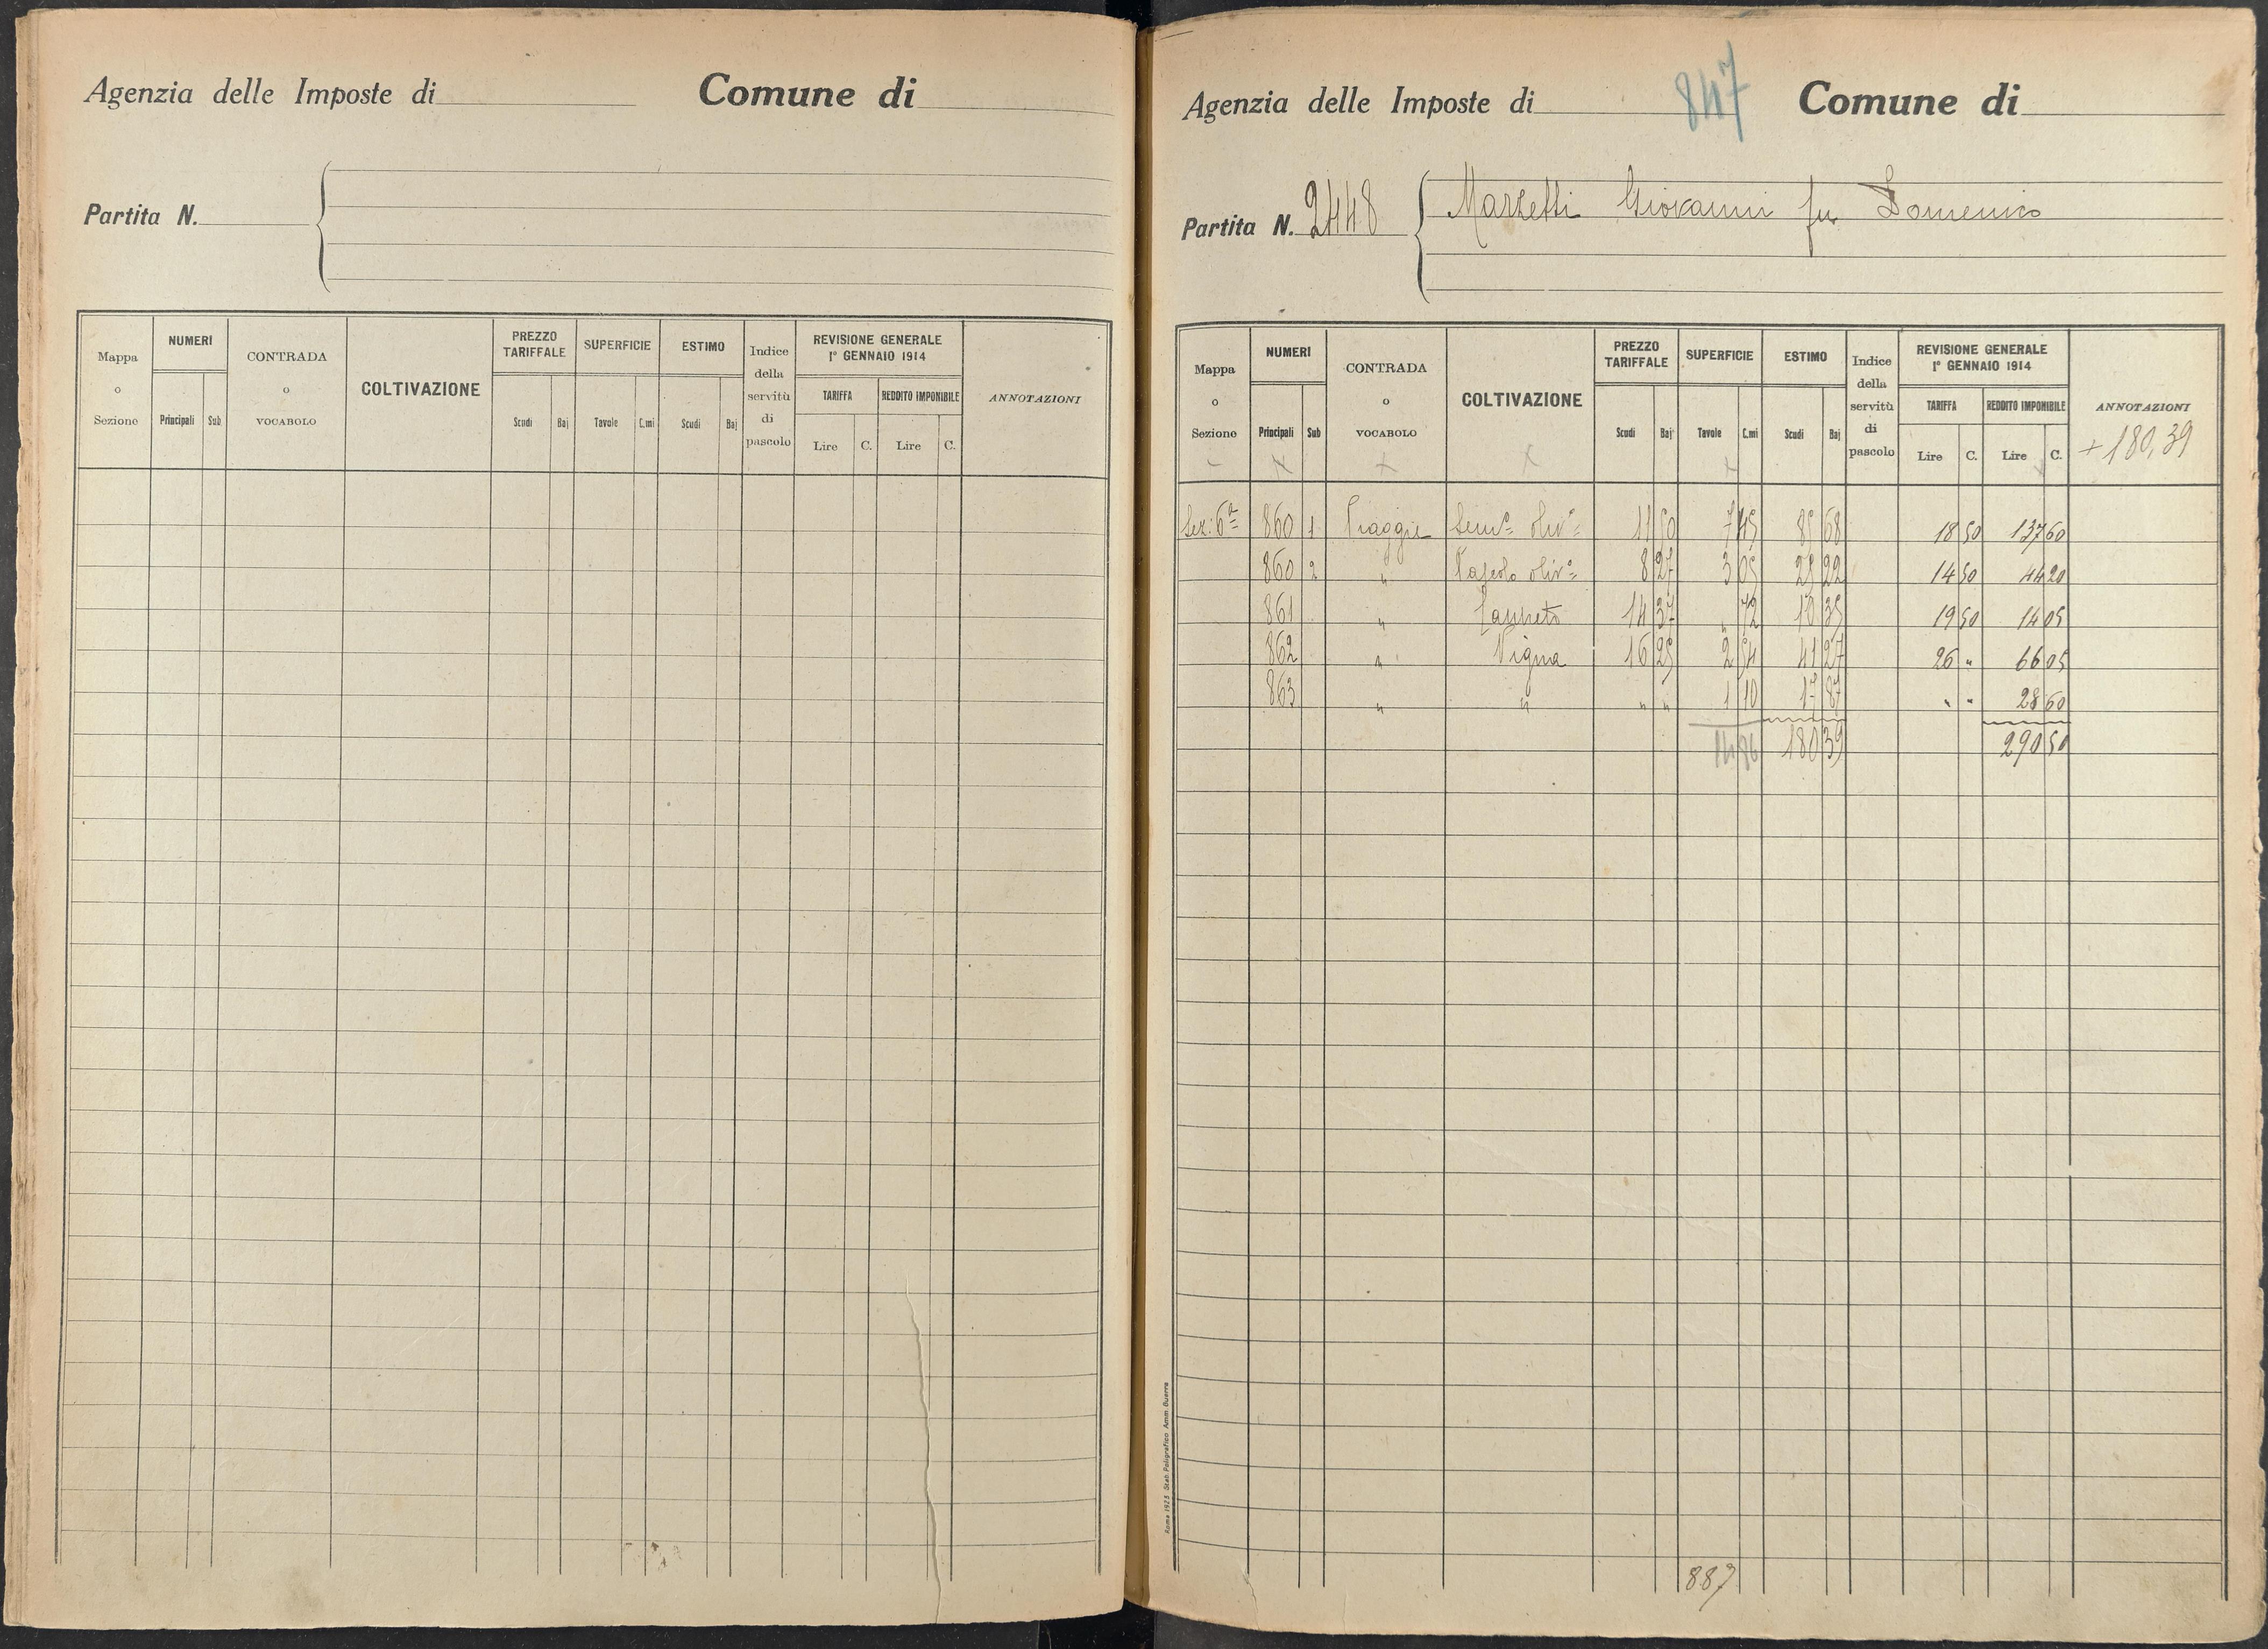 Agenzia delle Imposte di Comune di
Partita N.
Mappa o Sezione NUMERI Principali Sub CONTRADA o VOCABOLO COLTIVAZIONE PREZZO TARIFFALE Scudi Baj SUPERFICIE Tavole C.mi ESTIMO Scudi Baj Indice della servitù di pascolo REVISIONE GENERALE 1° GENNAIO 1914 TARIFFA Lire C. REDDITO IMPONIBILE Lire C. ANNOTAZIONI
847
Agenzia delle Imposte di Comune di
Partita N. 2448 Marzetti Giovanni fu Domenico
Mappa o Sezione NUMERI Principali Sub CONTRADA o VOCABOLO COLTIVAZIONE PREZZO TARIFFALE Scudi Baj SUPERFICIE Tavole C.mi ESTIMO Scudi Baj Indice della servitù di pascolo REVISIONE GENERALE 1° GENNAIO 1914 TARIFFA Lire C. REDDITO IMPONIBILE Lire C. ANNOTAZIONI
+180,39
Sez: 6ª 860 1 Piaggie Semº olivº 11 50 7 45 85 68 18 50 137 60
860 2 " Pascolo olivº 8 27 3 05 25 22 14 50 44 20
861 " Canneto 14 37 " 72 10 35 19 50 14 05
862 " Vigna 16 25 2 54 41 27 26 " 66 05
863 " " " " 1 10 17 87 " " 28 60
14 86 180 39 290 50
Roma 1923 Stab. Poligrafico Amm. Guerra
887